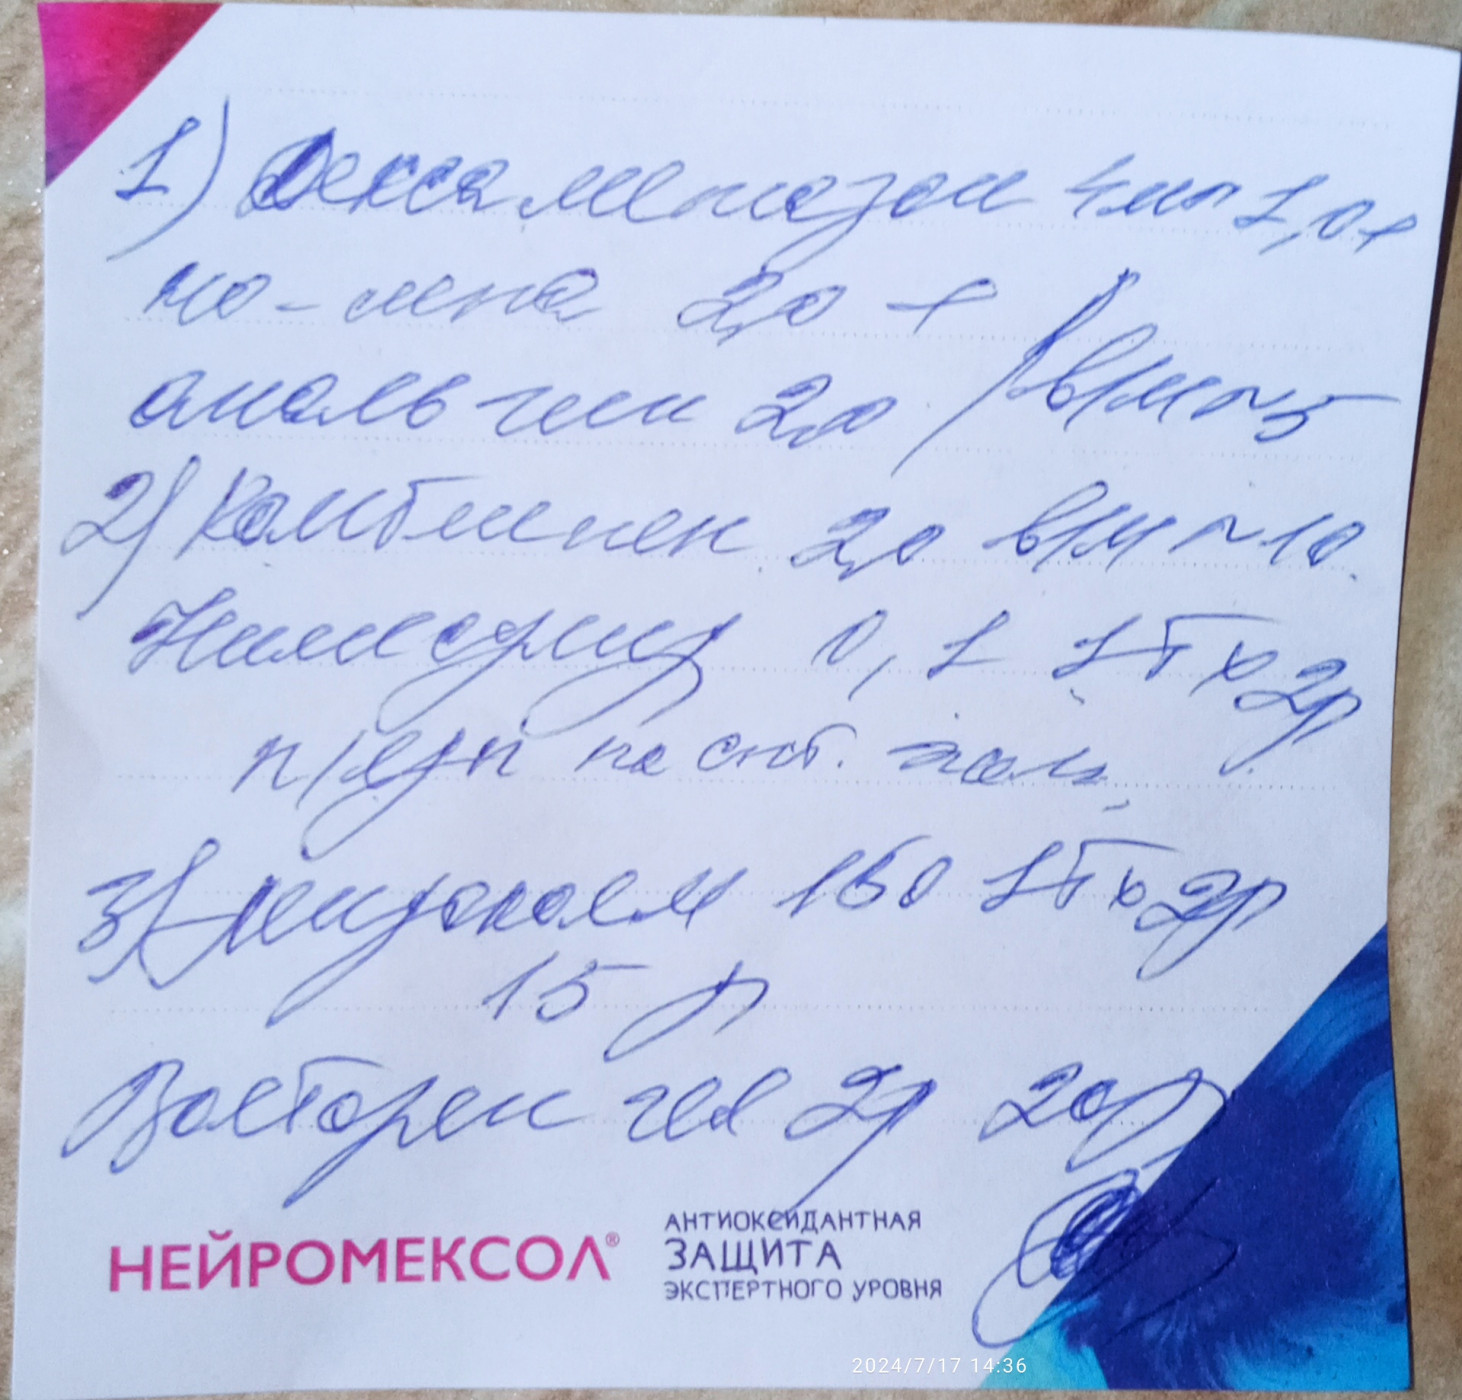 1) Дексаметазон 4мг 1,0 +
но-шпа 2,0 +
анальгин 2,0 в/м №5
2) Комбилипен 2,0 в/м №10
Нимесулид 0,1 1т х 2р
п/еды
3) Мидокалм 150 1т х 2р
15 д
Вольтарен гель 2р 20д
НЕЙРОМЕКСОЛ®
АНТИОКСИДАНТНАЯ
ЗАЩИТА
ЭКСПЕРТНОГО УРОВНЯ
2024/7/17 14:36